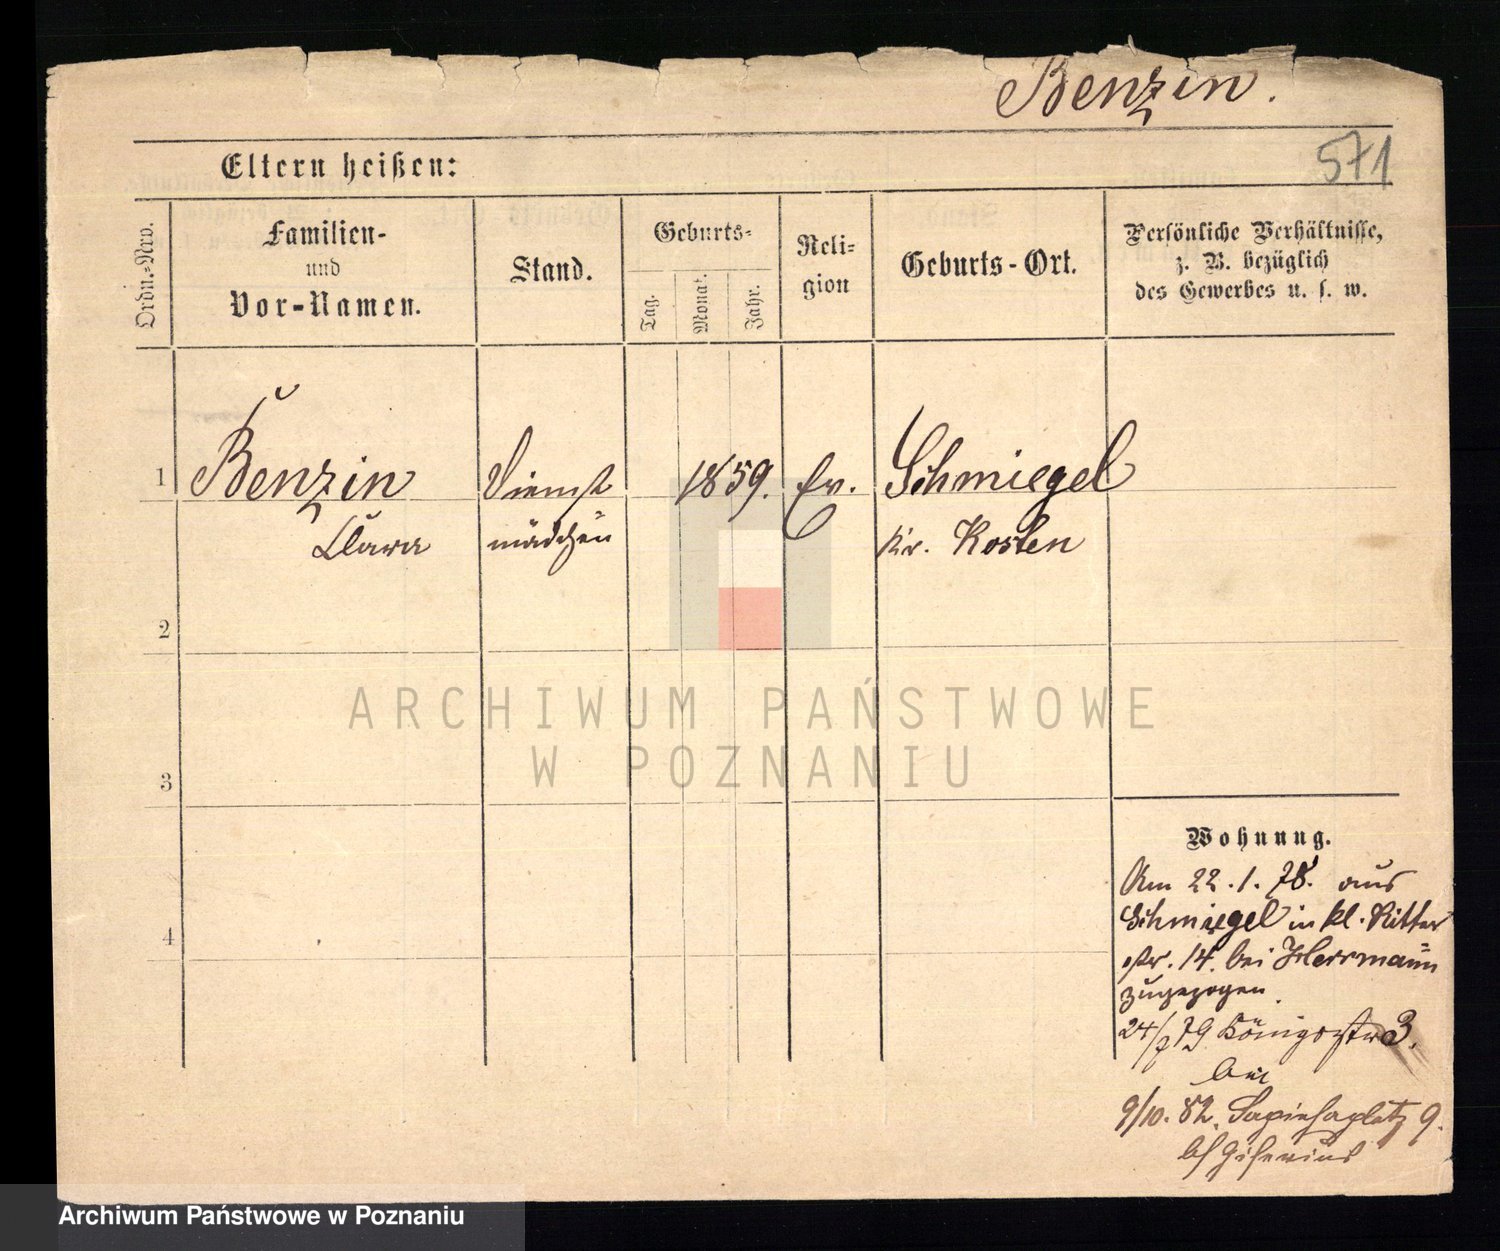 Benzin.
571
Eltern heißen:
Ordn.-Nro.
Familien-
und
Vor-Namen.
Stand.
Geburts-
Tag.
Monat.
Jahr.
Reli-
gion
Geburts-Ort.
Persönliche Verhältnisse,
z. B. bezüglich
des Gewerbes u. s. w.
1
Benzin
Clara
Dienst
mädchen
1859.
Ev.
Schmiegel
Kr. Kosten
2
3
4
ARCHIWUM PAŃSTWOWE
W POZNANIU
Wohnung.
Am 22.1.78. aus
Schmiegel in kl. Ritter
str. 14. bei Herrmann
zugezogen.
79 Königsstr 3.
bei
9/10. 82. Sapiehaplatz 9.
Archiwum Państwowe w Poznaniu